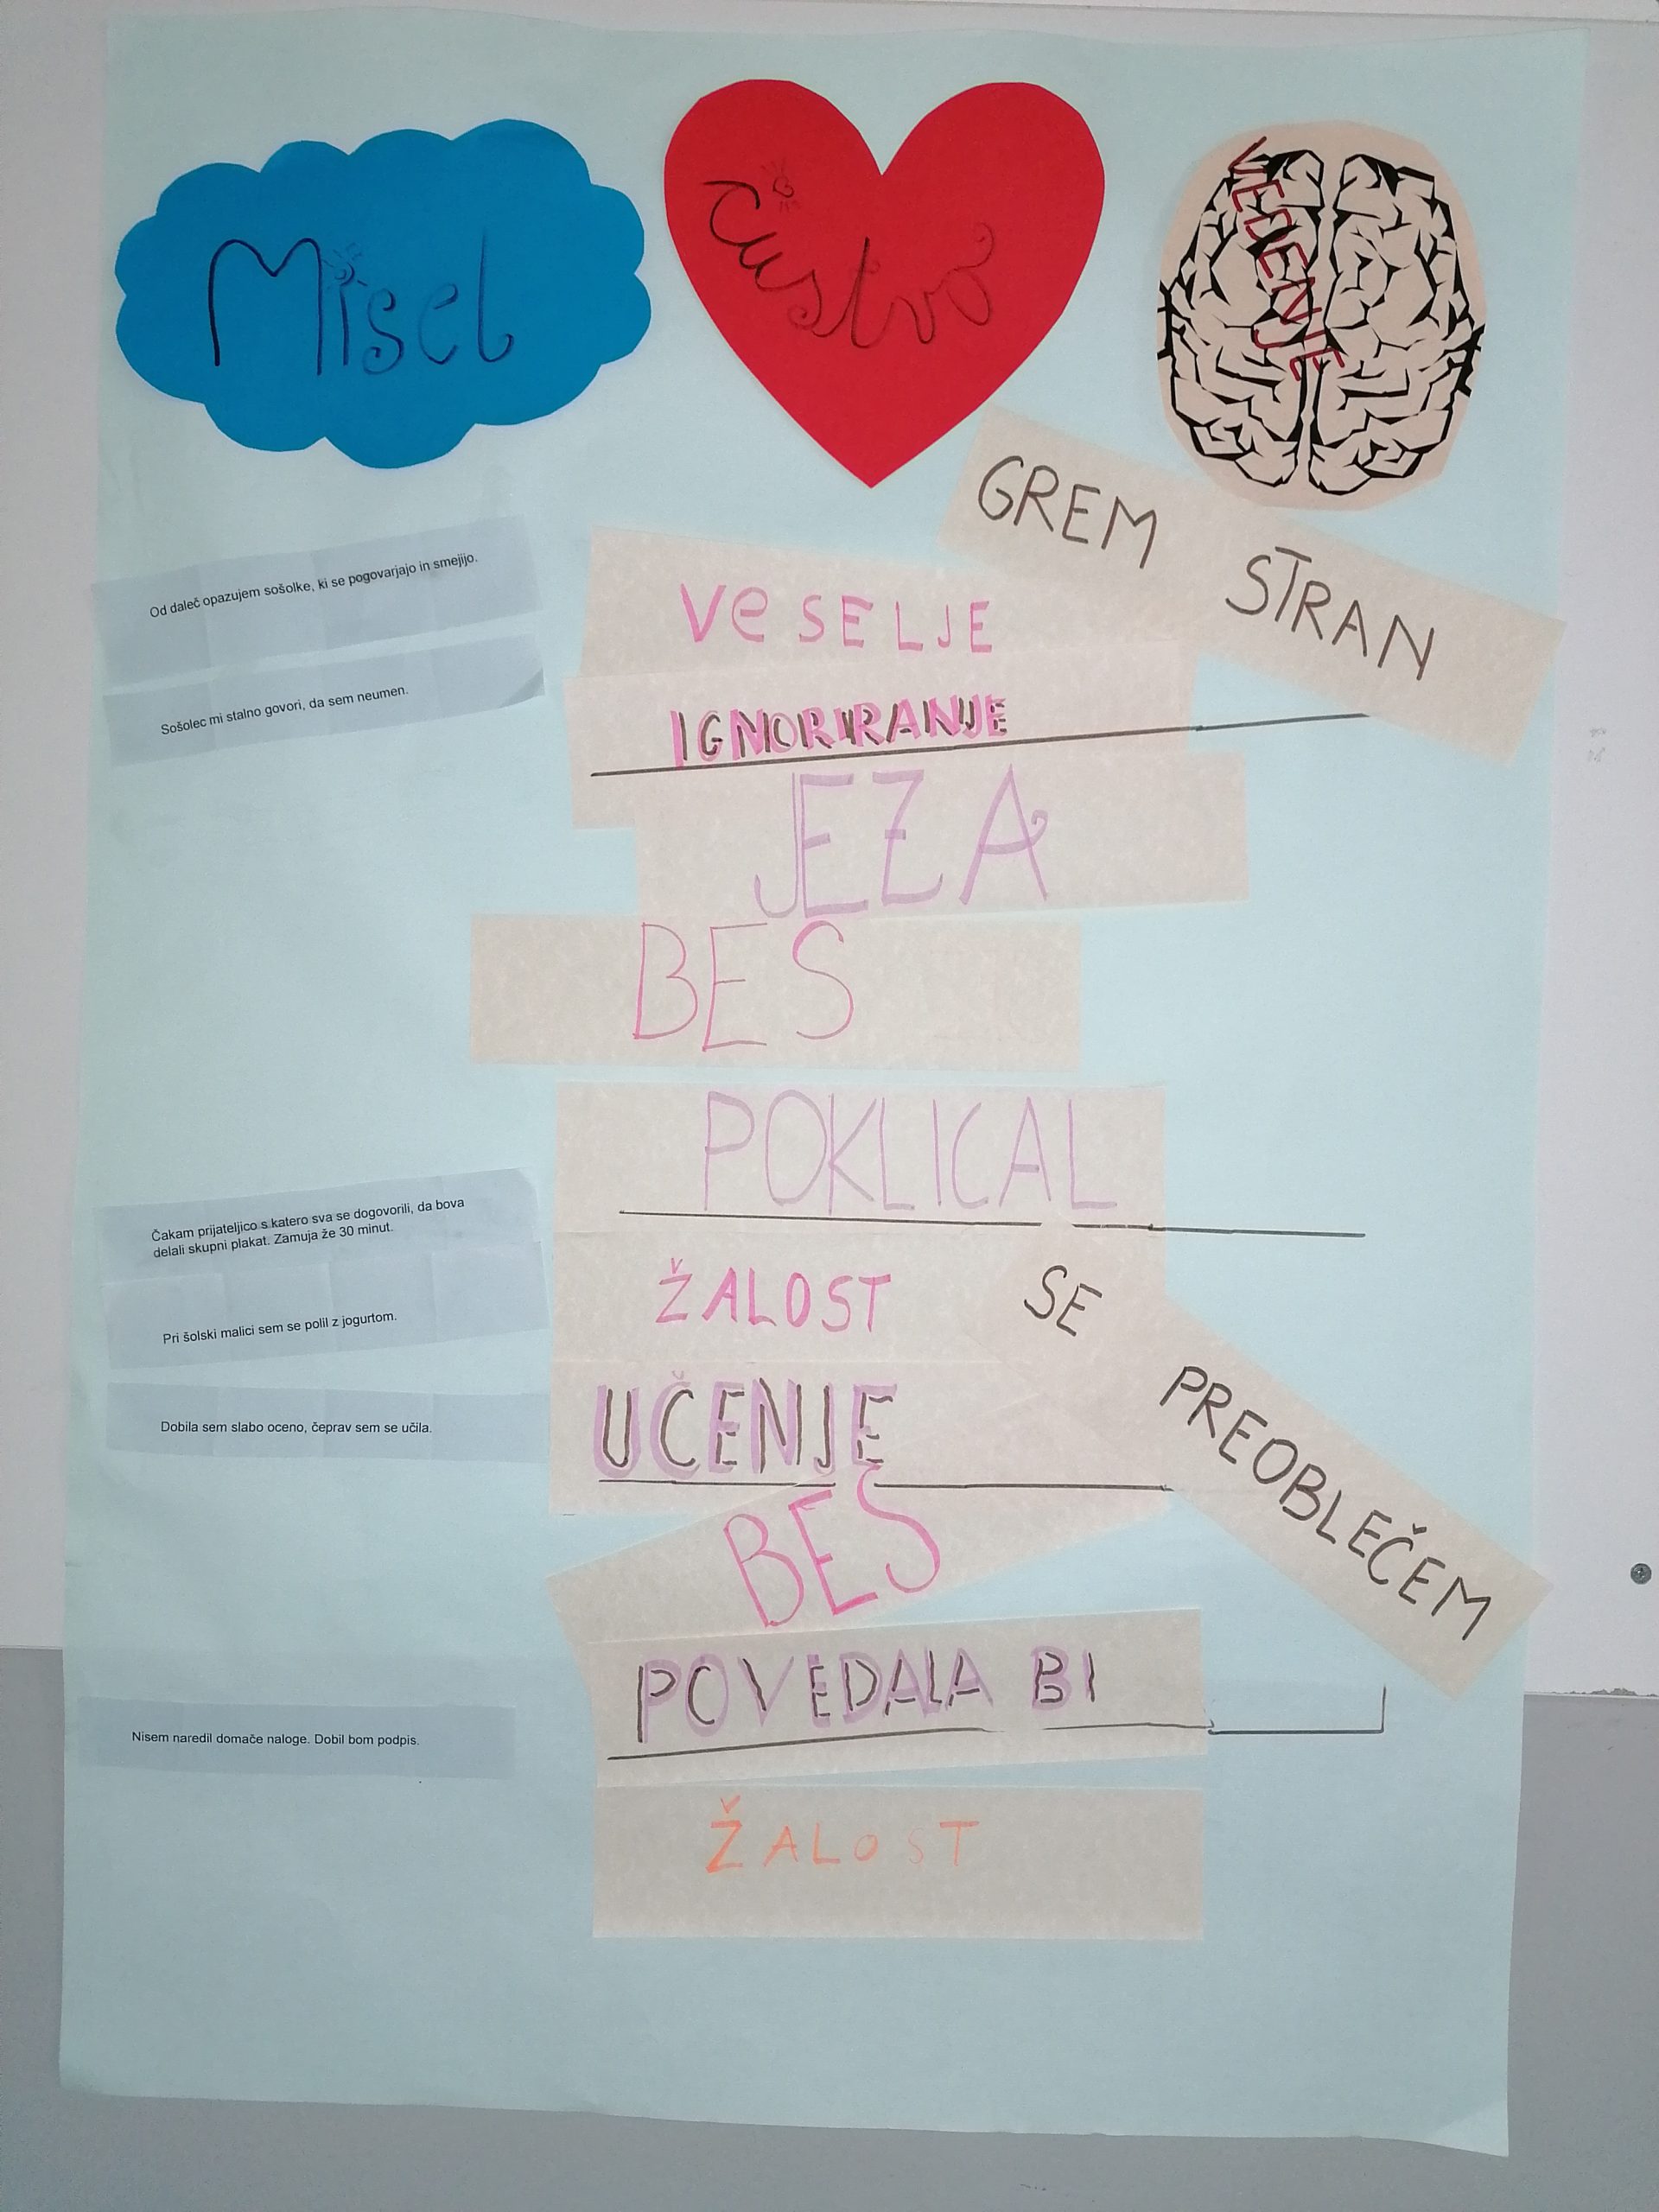 Misel
Čustvo
VEDENJE
GREM STRAN
Od daleč opazujem sošolke, ki se pogovarjajo in smejijo.
VeSELJE
Sošolec mi stalno govori, da sem neumen.
IGNORIRANJE
JEZA
BES
POKLICAL
Čakam prijateljico s katero sva se dogovorili, da bova
delali skupni plakat. Zamuja že 30 minut.
ŽALOST
SE PREOBLEČEM
Pri šolski malici sem se polil z jogurtom.
UČENJE
Dobila sem slabo oceno, čeprav sem se učila.
BES
POVEDALA BI
Nisem naredil domače naloge. Dobil bom podpis.
ŽALOST